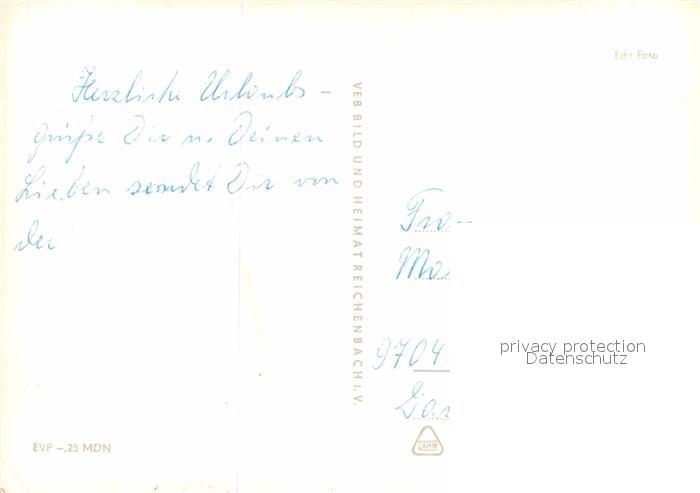 Echt Foto
Herzliche Urlaubs-
grüße Dir u. Deinen
Lieben sendet Dir von
der
VEB BILD UND HEIMAT REICHENBACH I. V.
Fra
9704
privacy protection
Datenschutz
DAMW
EVP -,25 MDN